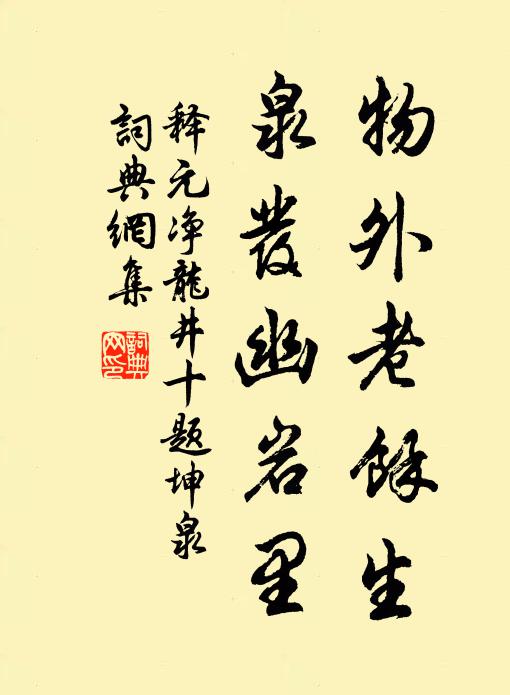 物外老馀生
泉發幽岩里
释元净龍井十题坤泉
詞典網集
詞典網印